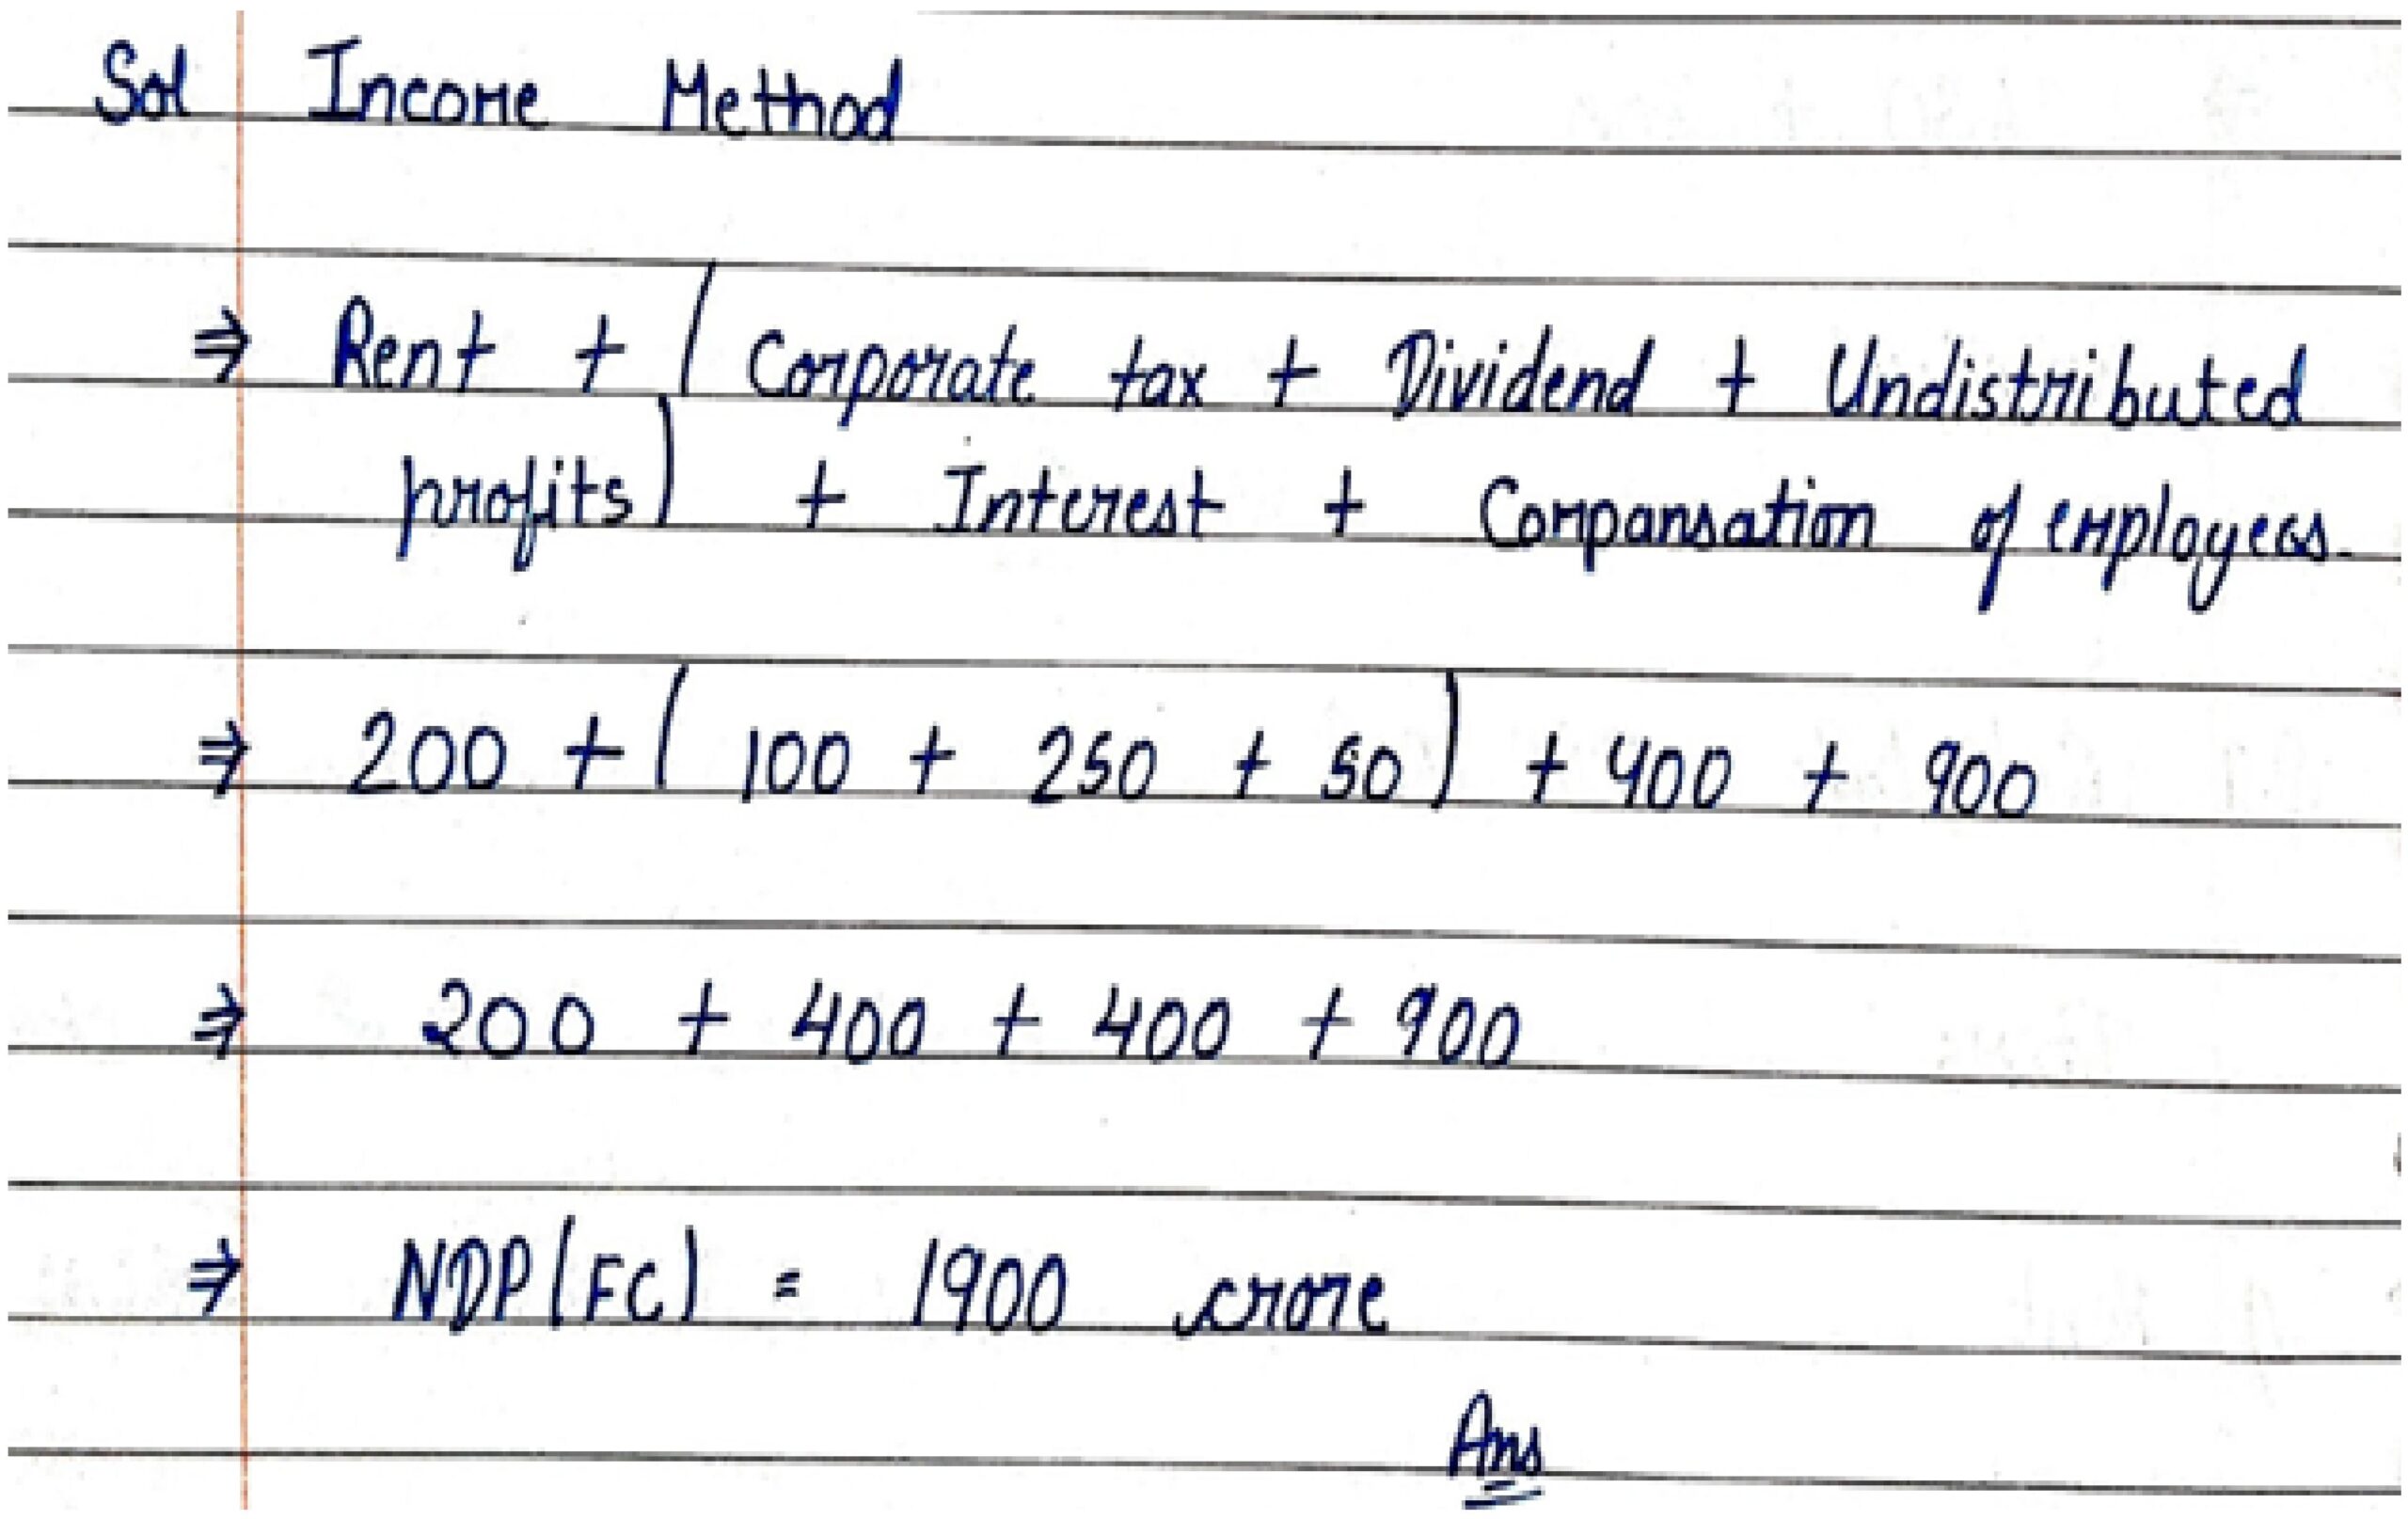 Sol Income Method
⇒ Rent + ( Corporate tax + Dividend + Undistributed
profits) + Interest + Compansation of employees.
⇒ 200 + ( 100 + 250 + 50) + 400 + 900
⇒ 200 + 400 + 400 + 900
⇒ NDP(FC) = 1900 crore
Ans